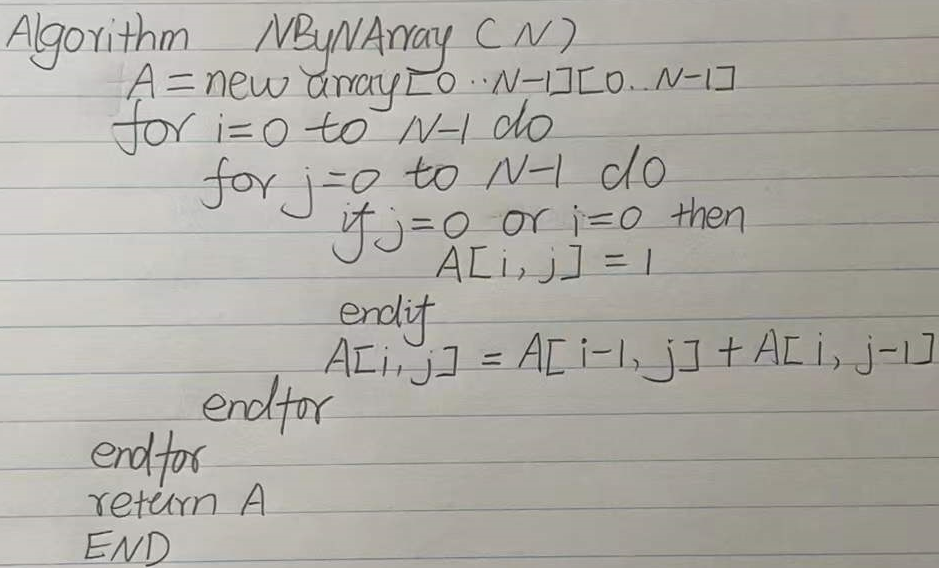 Algorithm NByNArray (N)
A = new array[0..N-1][0..N-1]
for i=0 to N-1 do
for j=0 to N-1 do
if j=0 or i=0 then
A[i, j] = 1
endif
A[i, j] = A[i-1, j] + A[i, j-1]
endfor
endfor
return A
END